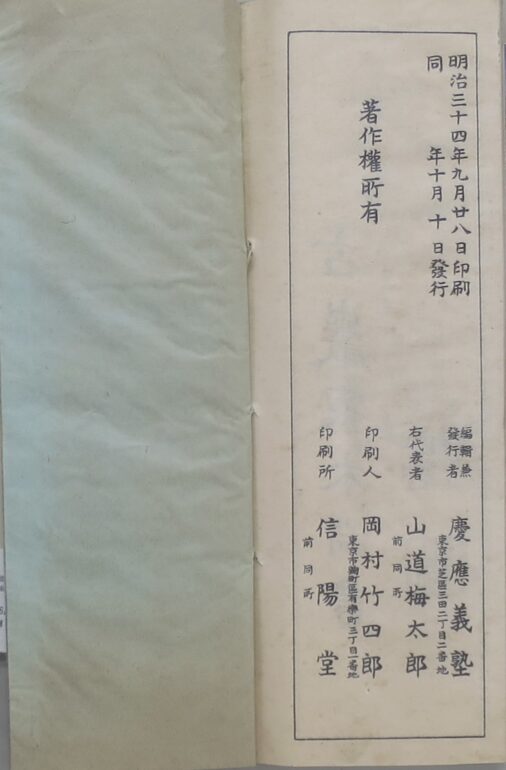 明治三十四年九月廿八日印刷
同年十月十日發行
著作權所有
編輯兼
發行者
慶應義塾
東京市芝區三田二丁目二番地
右代表者
山道梅太郎
前同所
印刷人
岡村竹四郎
東京市麹町區有樂町三丁目一番地
印刷所
信陽堂
前同所